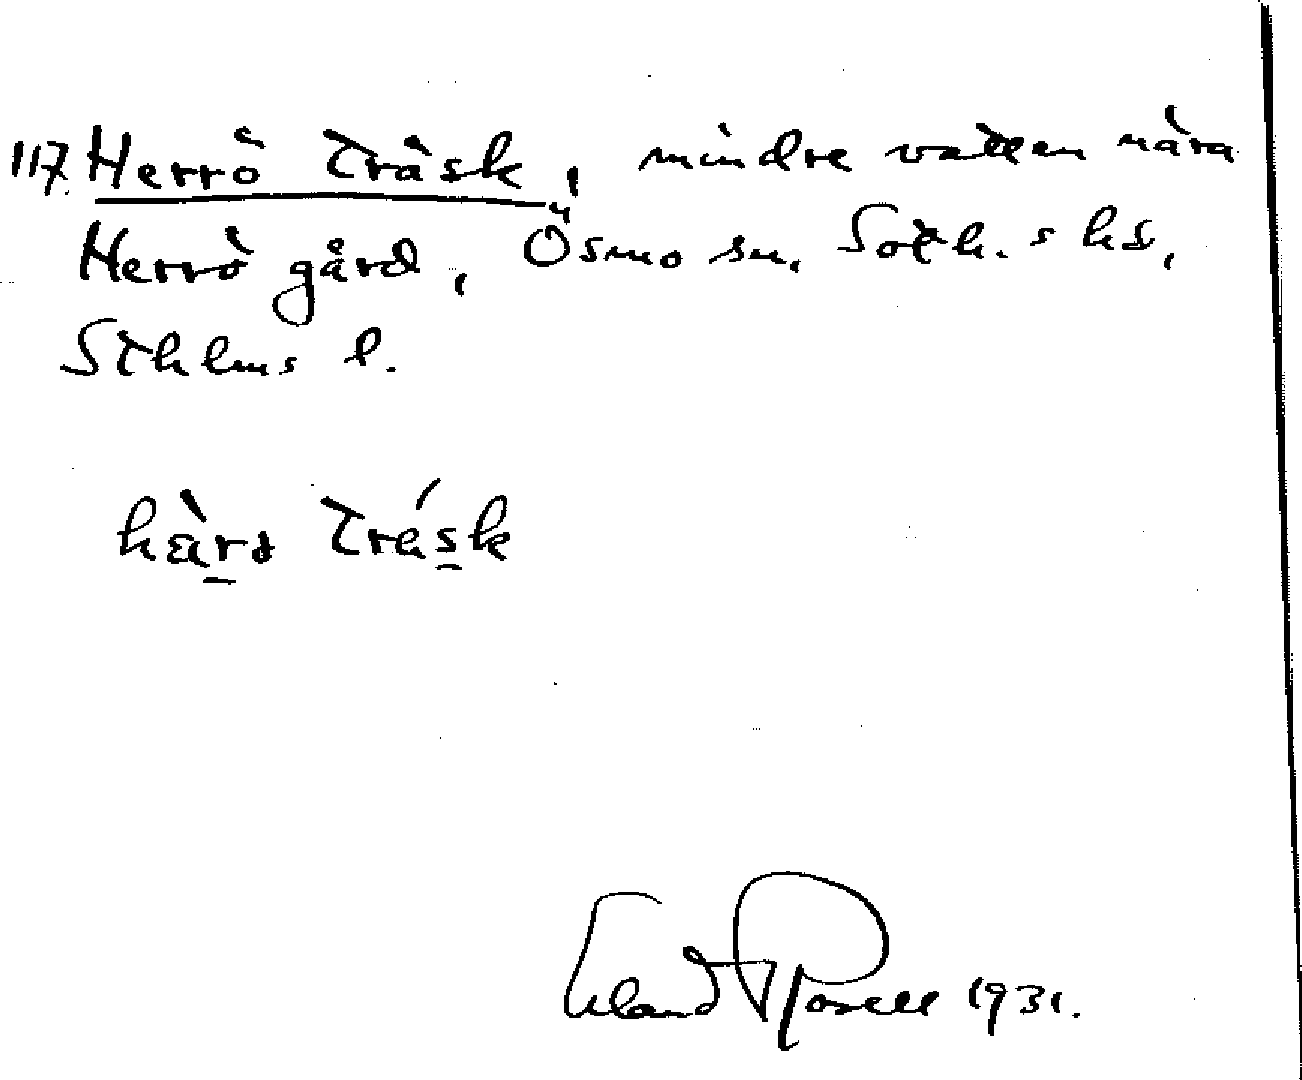 117. Herrö träsk, mindre vatten nära
Herrö gård, Ösmo sn. Soth. s hd,
Sthlms l.
hä̀rö trä́sk
Erland Rosell 1931.